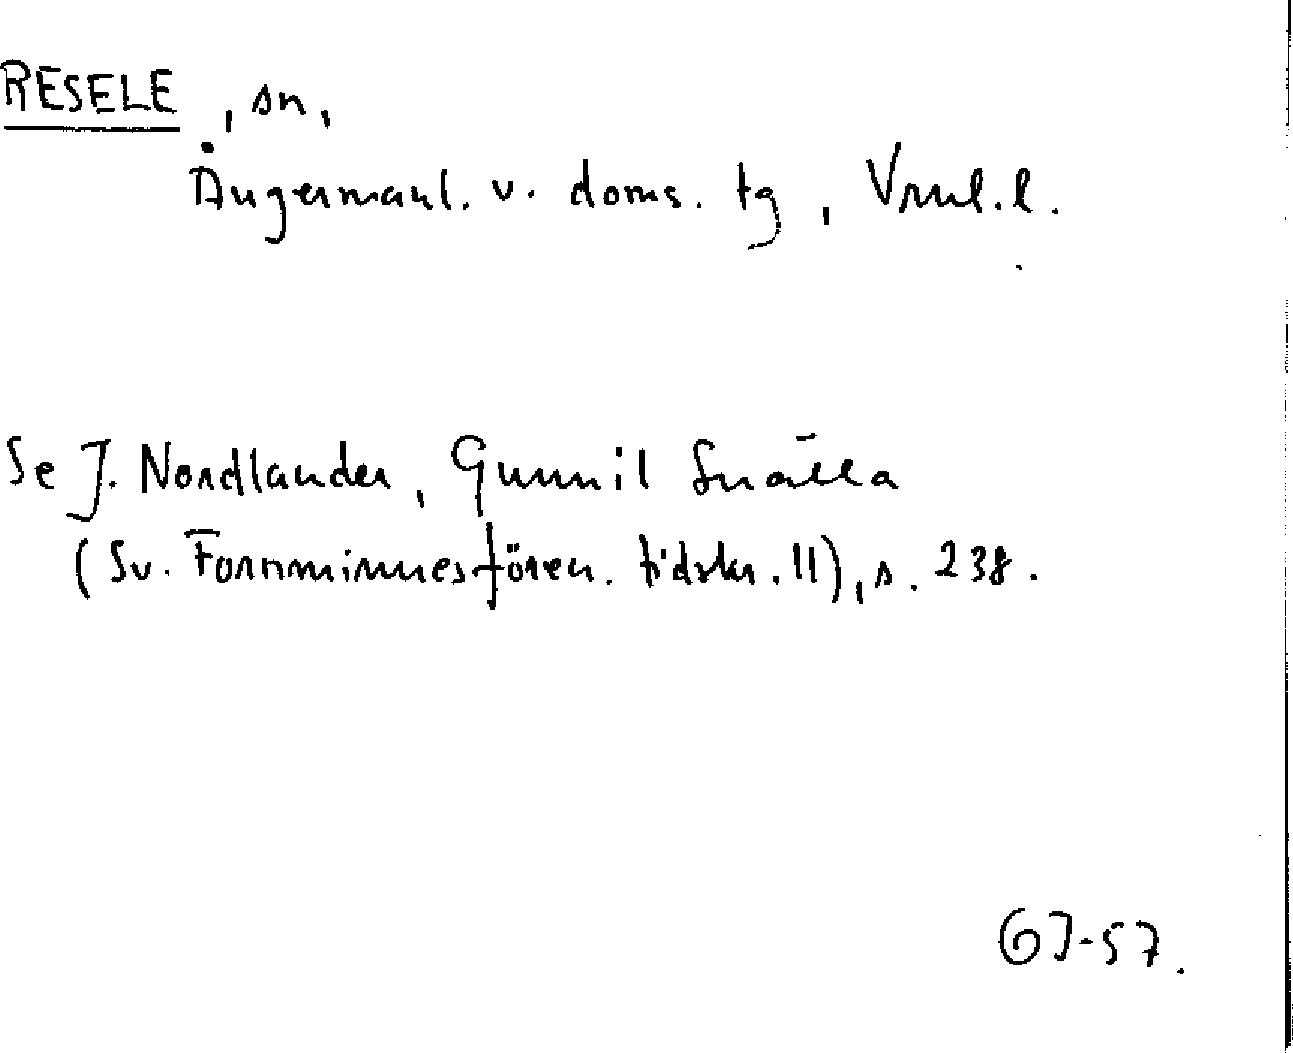 RESELE, sn,
Ångermanl. v. doms. tg, Vrnl.l.
Se J. Nordlander, Gunnil Snälla
(Sv. Fornminnesfören. tidskr. 11), s. 238.
GJ-57.